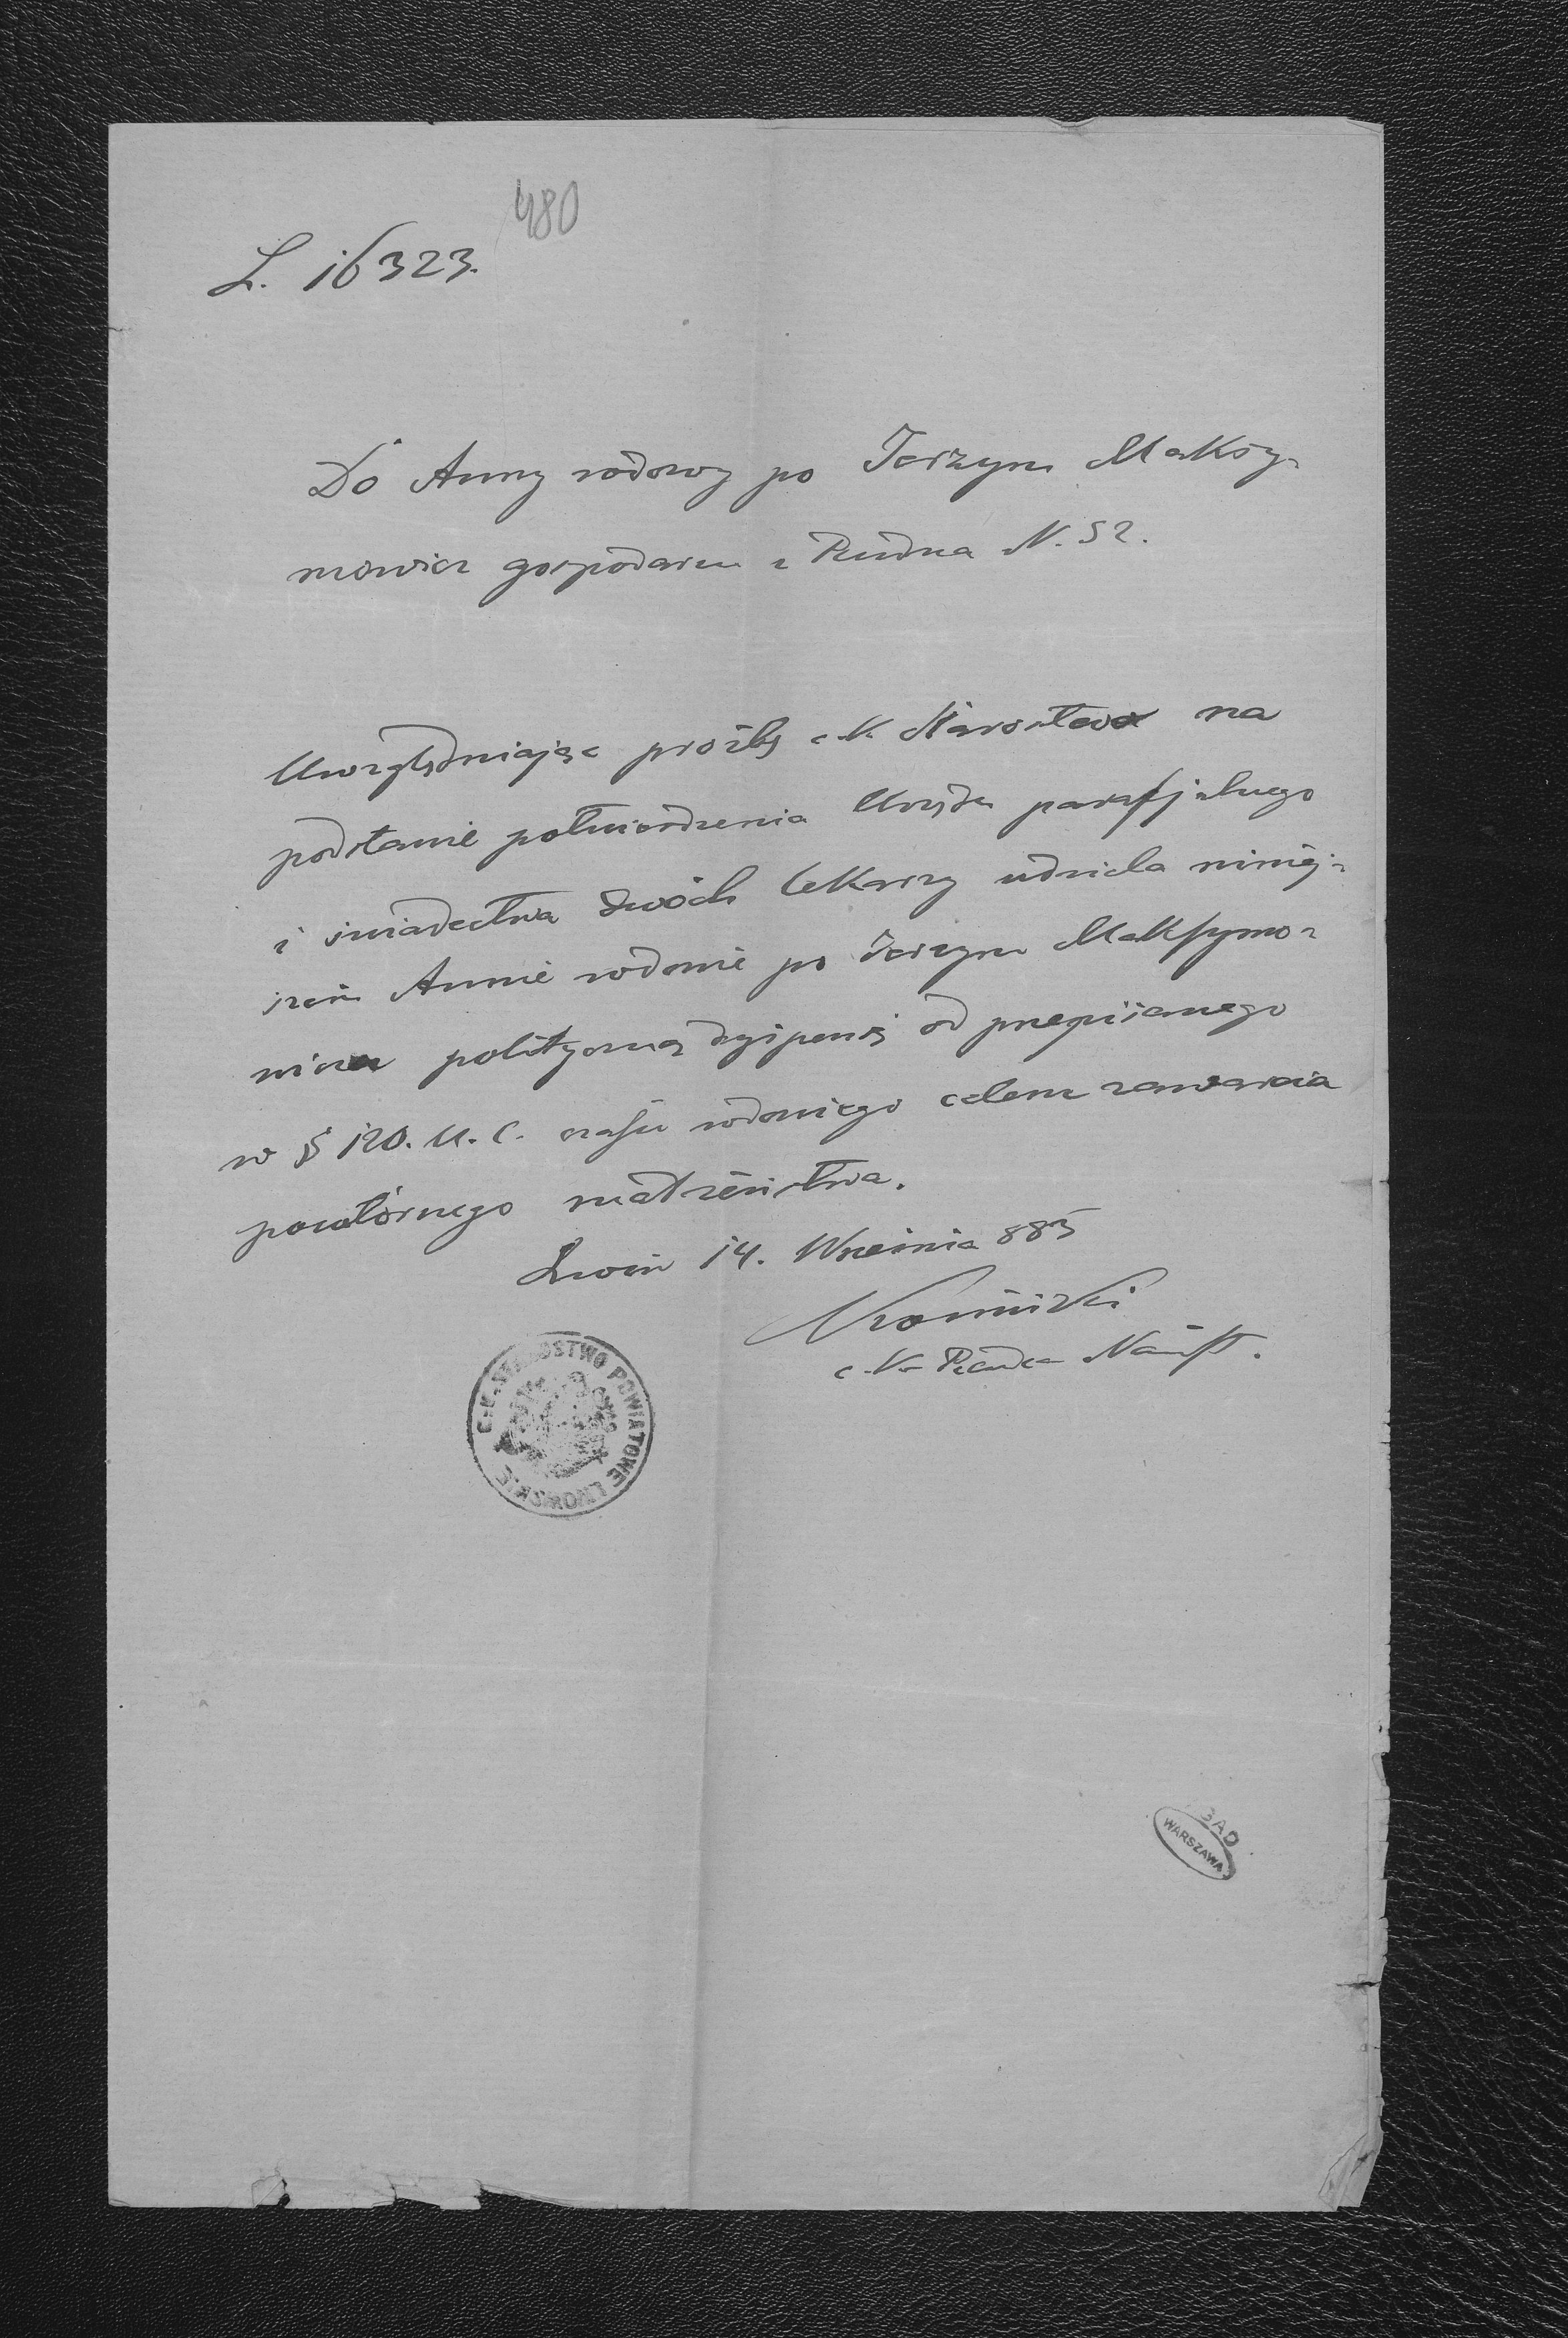 480
L. 16323.
Do Anny wdowy po Jerzym Maksy-
mowicz gospodarzu z Rudna N. 52.
Uwzględniając prośbę c.k. Starostwo na
podstawie potwierdzenia Urzędu parafjalnego
i świadectwa dwóch lekarzy udziela niniej-
szem Annie wdowie po Jerzym Maksymo-
wiczu polityczną dyspensę od przepisanego
w § 120. U. C. czasu wdowiego celem zawarcia
powtórnego małżeństwa.
Lwów 14. Września 885
c.k. Radca Namst.
C. K. STAROSTWO POWIATOWE LWOWSKIE
BAD
WARSZAWA